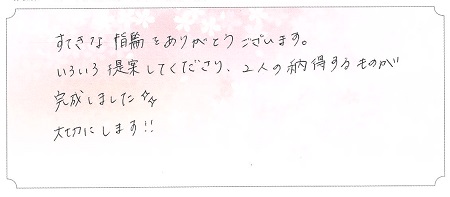 すてきな指輪をありがとうございます。
いろいろ提案してくださり、2人の納得するものが
完成しました☆☆
大切にします!!